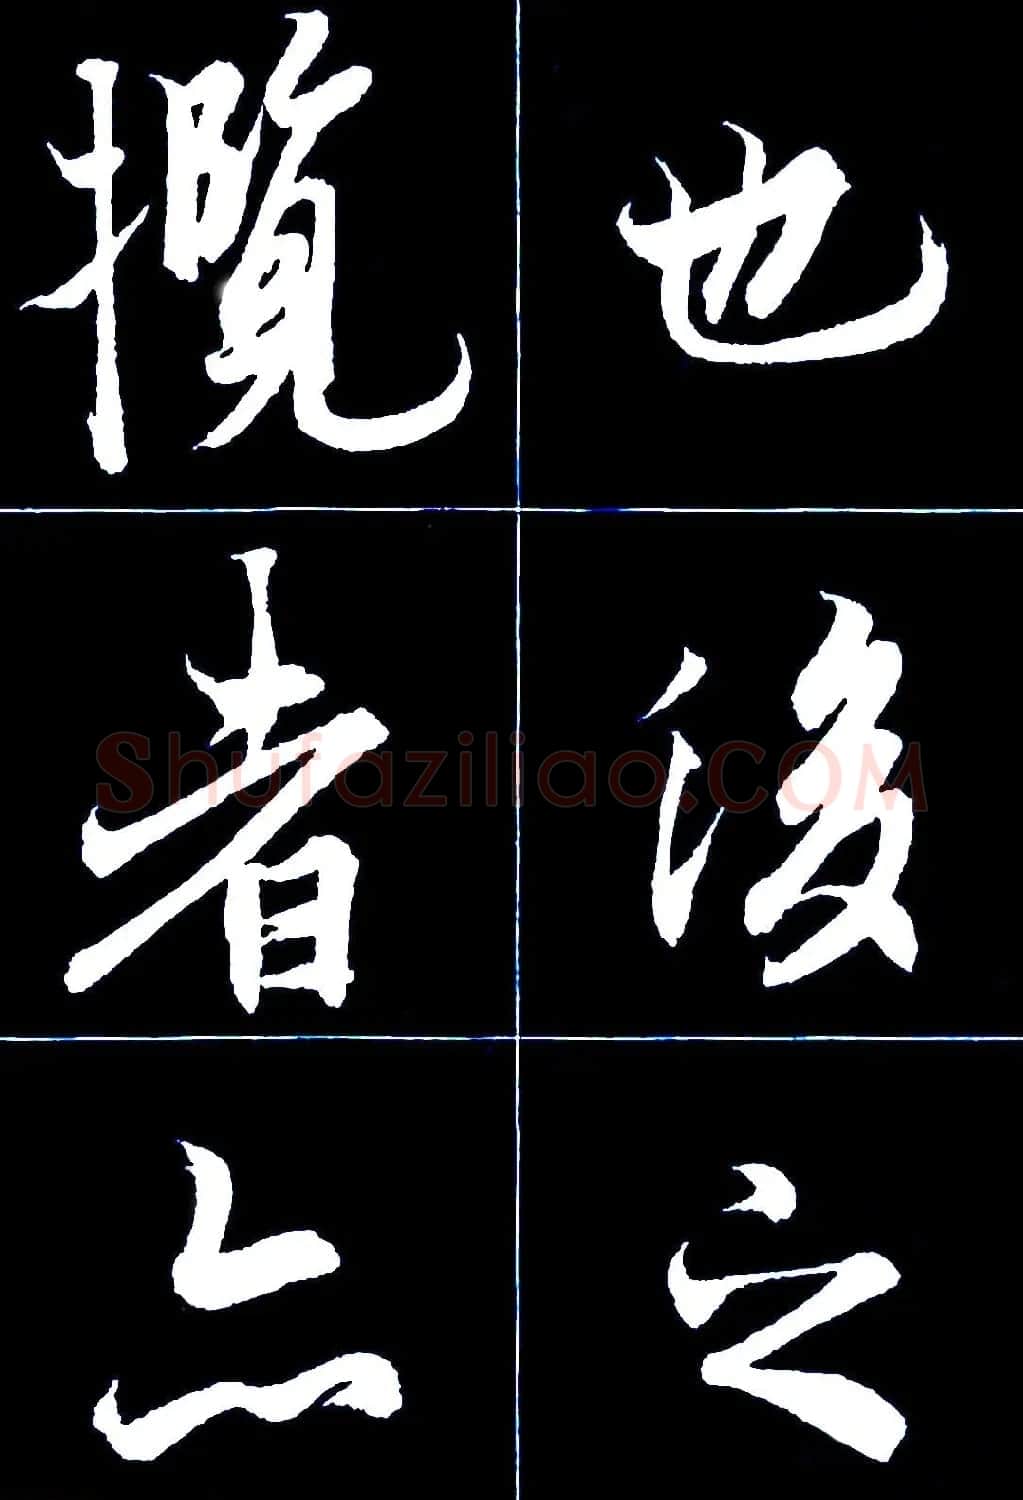 也後之
攬者亦
Shufaziliao.COM